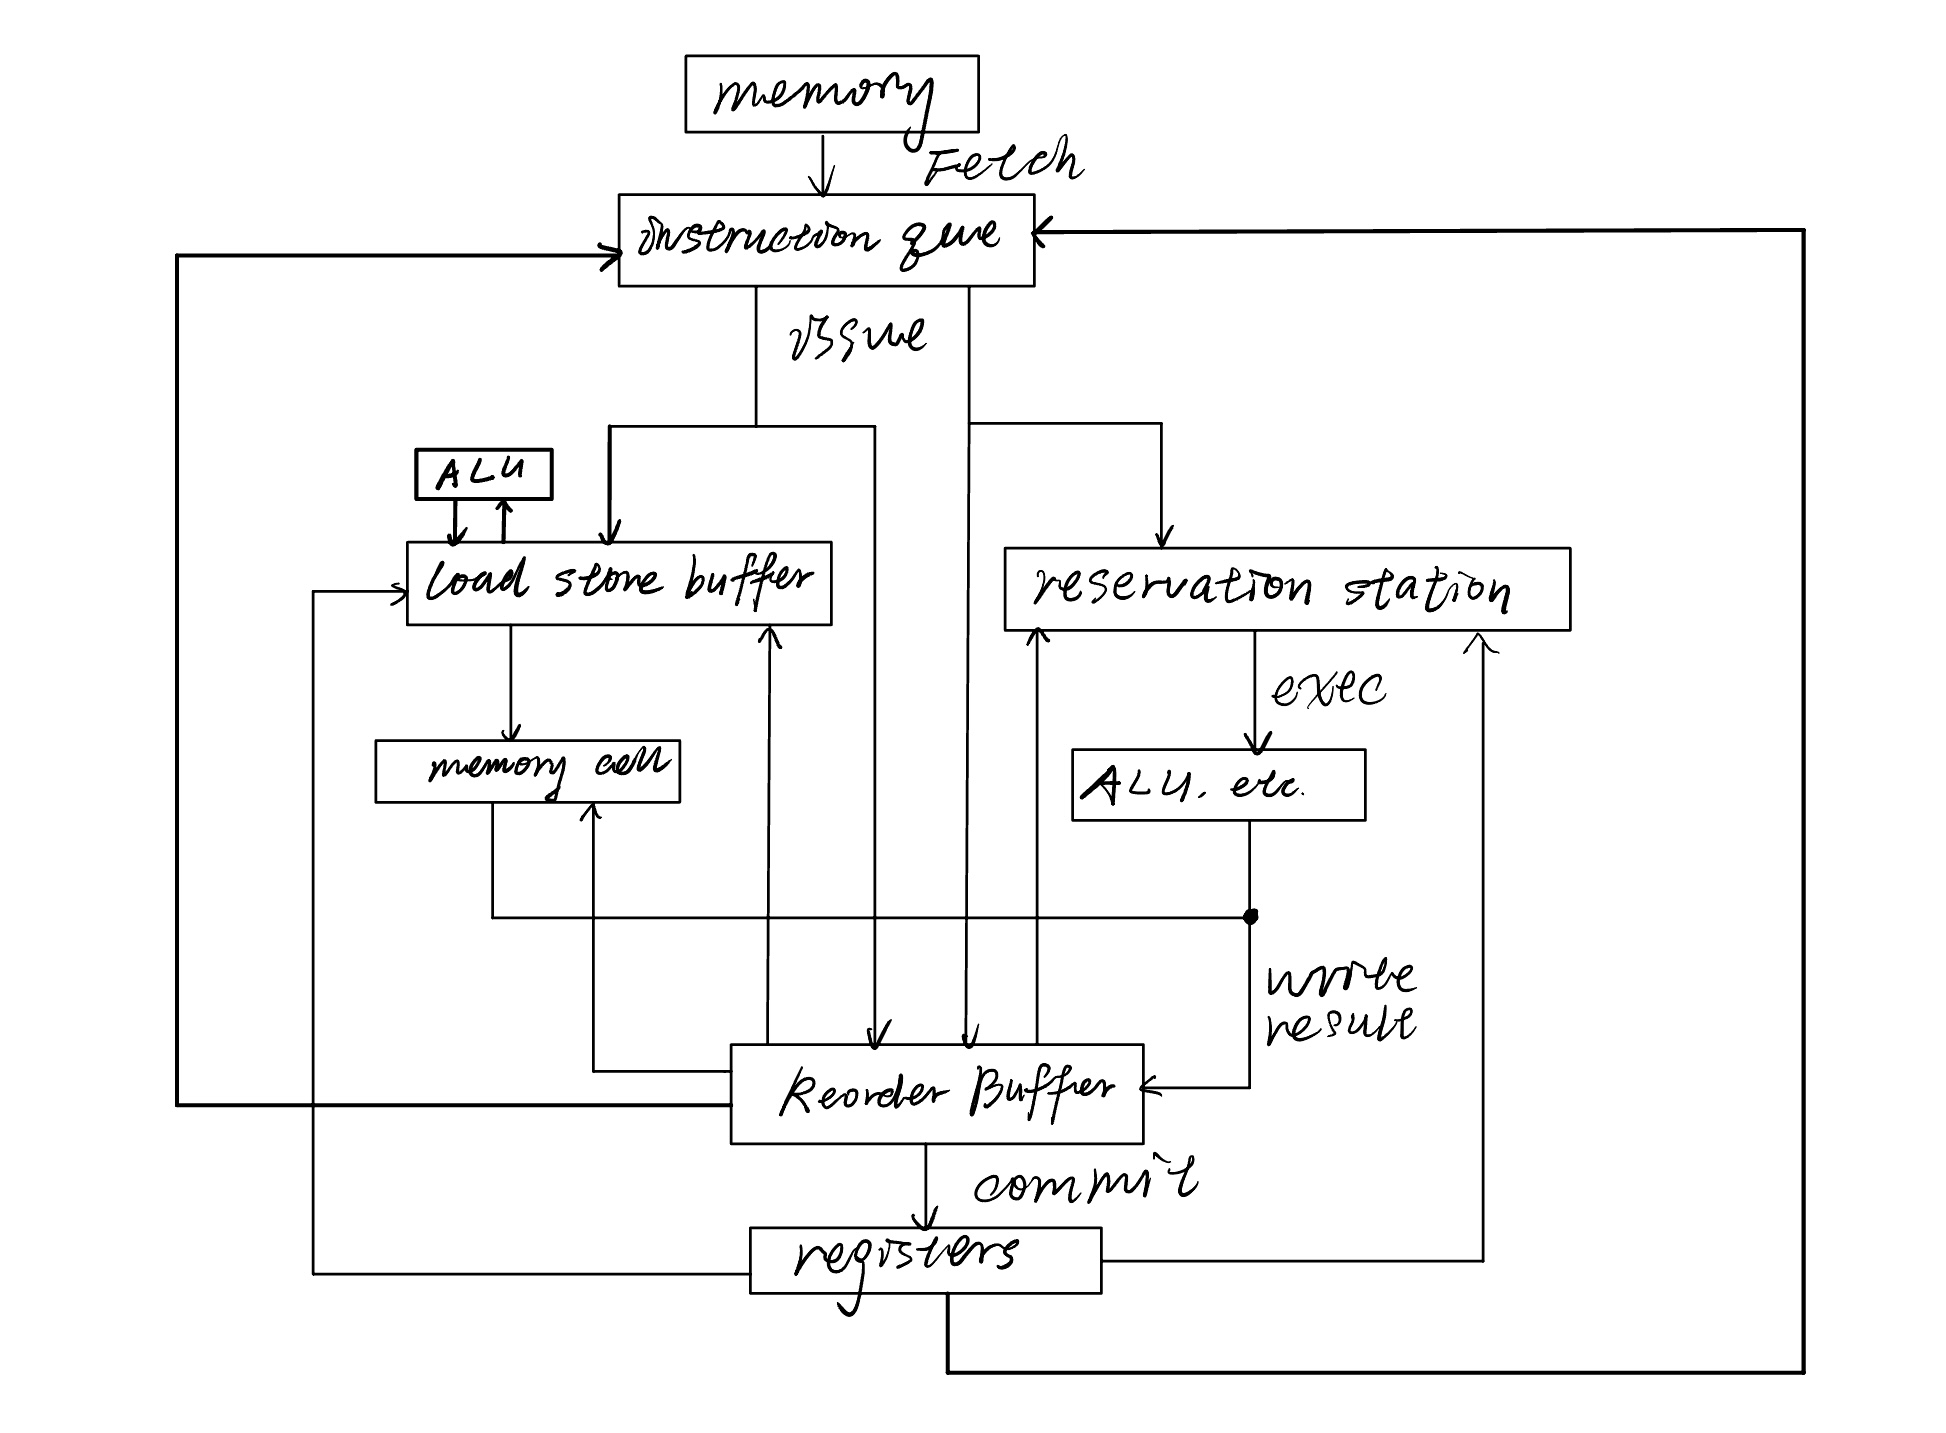 memory
Fetch
instruction queue
issue
ALU
load store buffer
reservation station
exec
memory cell
ALU. etc.
write
result
Reorder Buffer
commit
registers